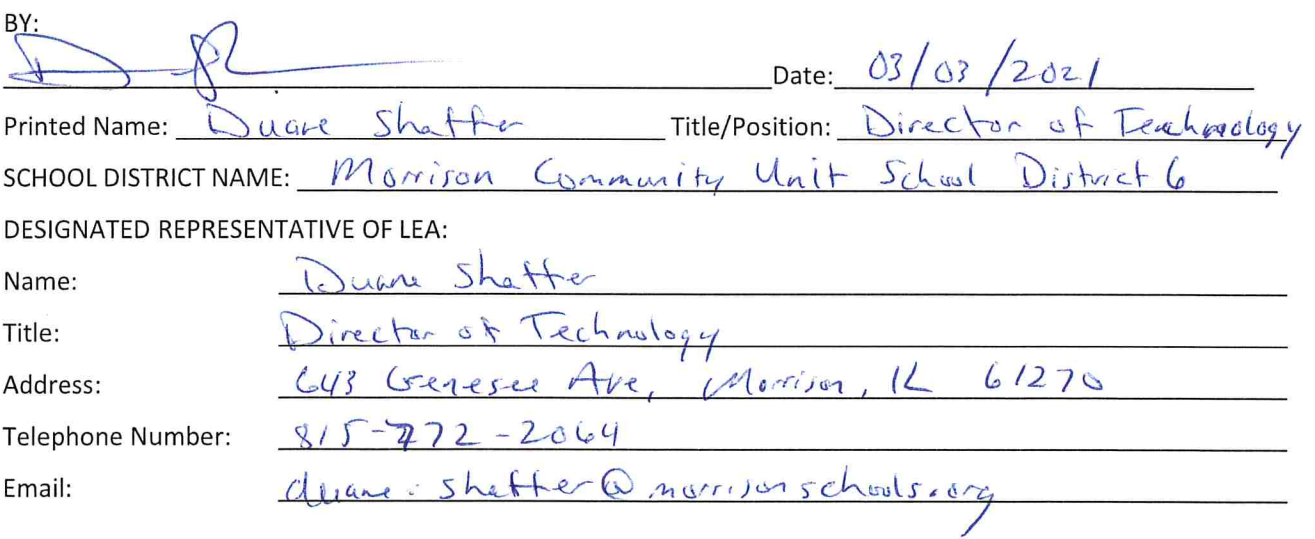 BY:
Date: 03/03/2021
Printed Name: Duane Shaffer Title/Position: Director of Technology
SCHOOL DISTRICT NAME: Morrison Community Unit School District 6
DESIGNATED REPRESENTATIVE OF LEA:
Name: Duane Shaffer
Title: Director of Technology
Address: 643 Genesee Ave, Morrison, IL 61270
Telephone Number: 815-772-2064
Email: duane.shaffer@morrisonschools.org